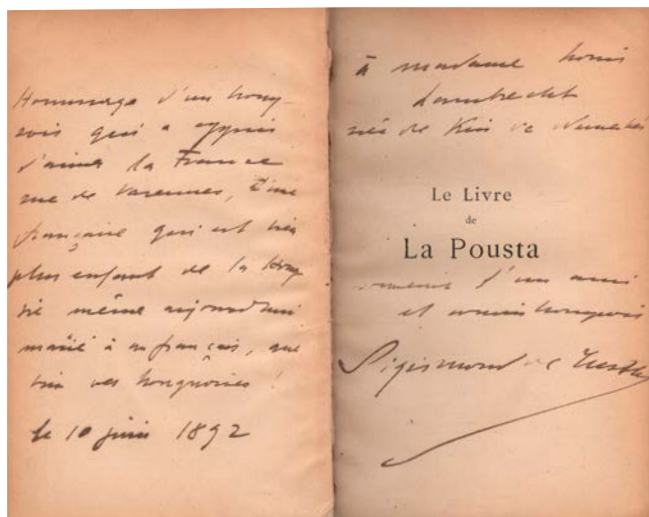 Hommage d'un hong-
rois qui a appris
d'aimer la France
rue de Varennes, d'une
française qui est bien
plus enfant de la Hong
rie même aujourd'hui
mariée à un français, que
bien des hongroises !
le 10 juin 1892
à madame Louis
Lambrecht
née de Kiss de Nemeskér
Le Livre
de
La Pousta
souvenir d'un ami
et hongrois
Sigismond de Justh